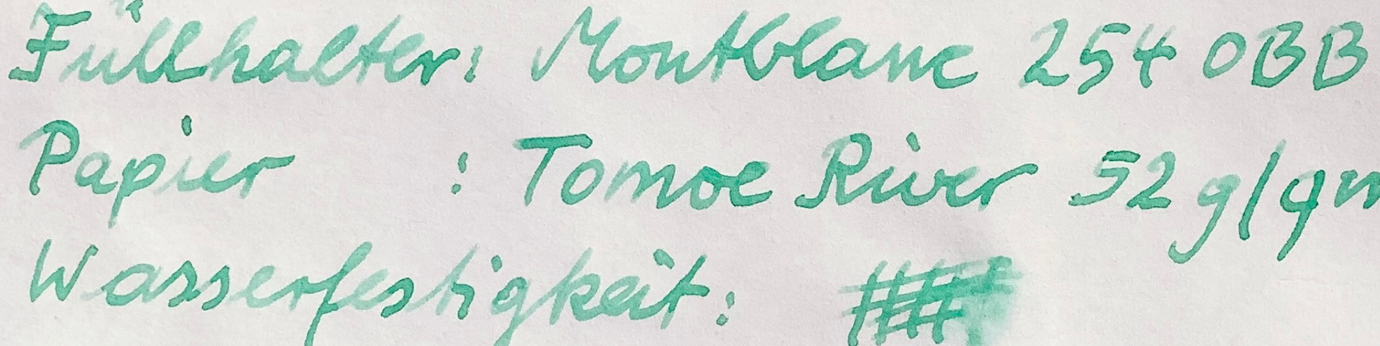 Füllhalter: Montblanc 254 OBB
Papier : Tomoe River 52 g/qm
Wasserfestigkeit: